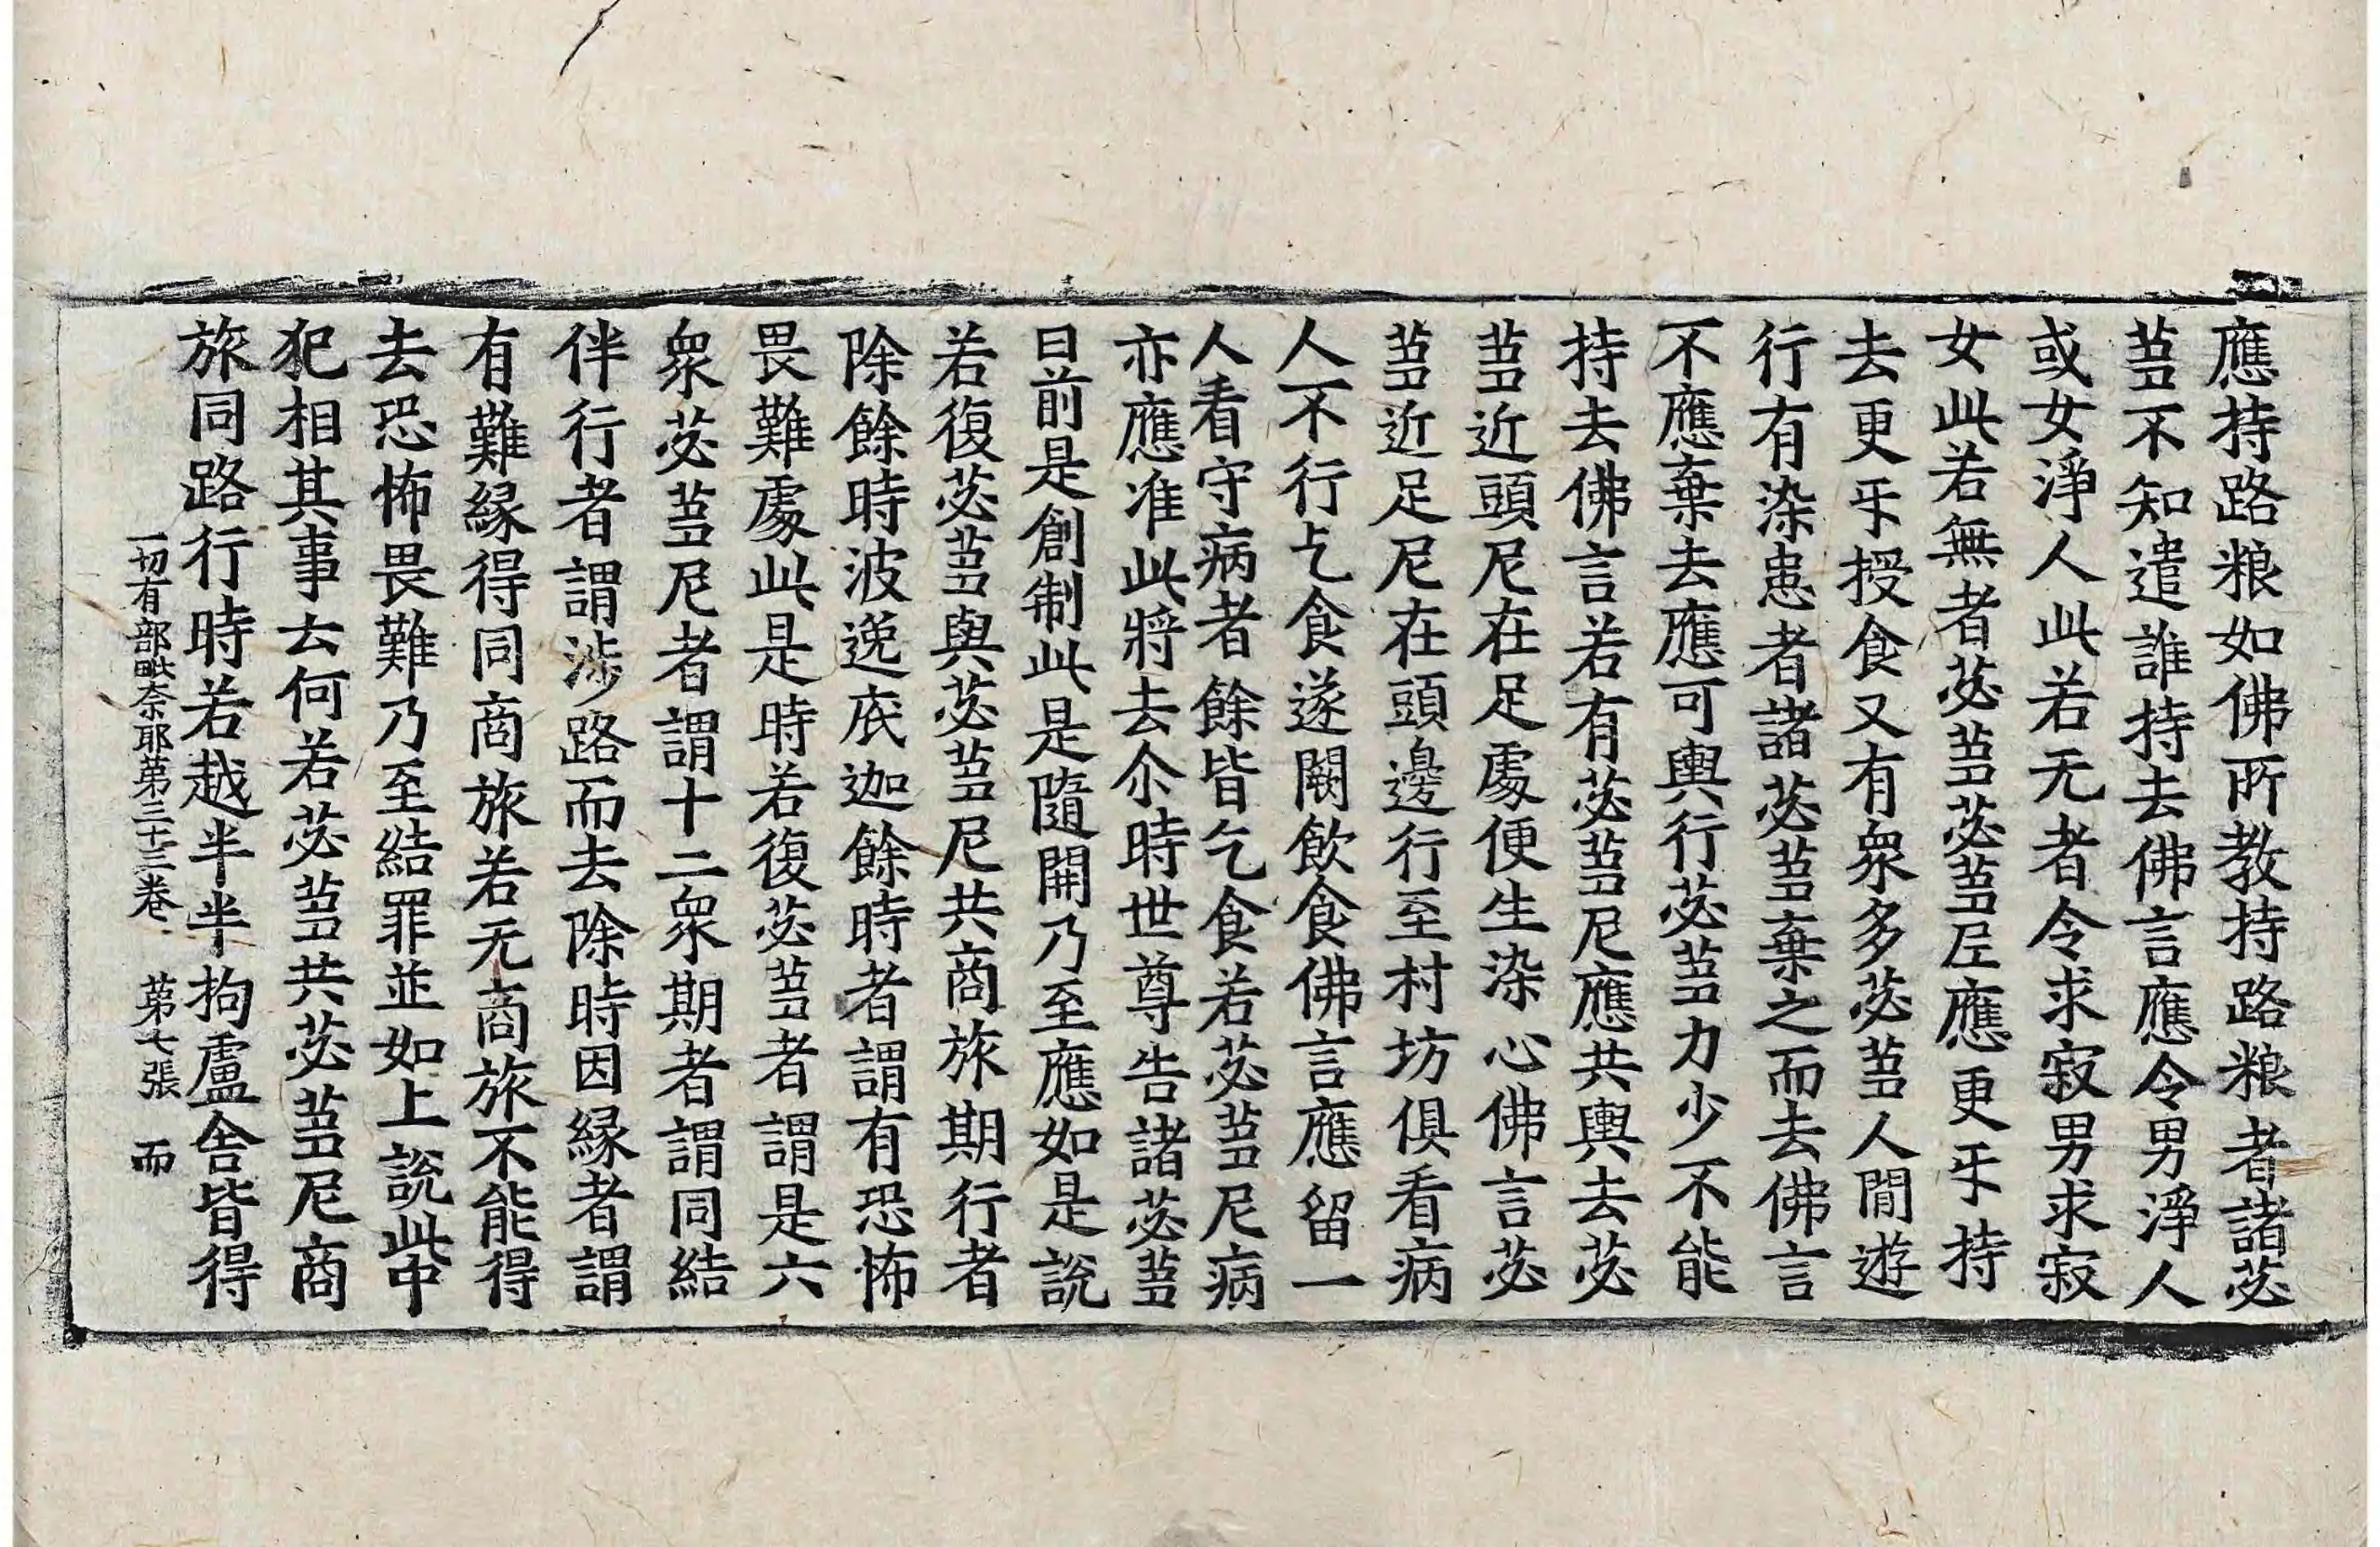 應持路粮如佛所教持路粮者諸苾
蒭不知遣誰持去佛言應令男淨人
或女淨人此若无者令求寂男求寂
女此若無者苾蒭苾蒭尼應更㸦持
去更㸦授食又有衆多苾蒭人間遊
行有染患者諸苾蒭棄之而去佛言
不應棄去應可輿行苾蒭力少不能
持去佛言若有苾蒭尼應共輿去苾
蒭近頭尼在足處便生染心佛言苾
蒭近足尼在頭邊行至村坊俱看病
人不行乞食遂闕飲食佛言應留一
人看守病者餘皆乞食若苾蒭尼病
亦應准此將去尒時世尊告諸苾蒭
曰前是創制此是隨開乃至應如是說
若復苾蒭與苾蒭尼共商旅期行者
除餘時波逸底迦餘時者謂有恐怖
畏難處此是時若復苾蒭者謂是六
衆苾蒭尼者謂十二衆期者謂同結
伴行者謂涉路而去除時因緣者謂
有難緣得同商旅若无商旅不能得
去恐怖畏難乃至結罪並如上說此中
犯相其事云何若苾蒭共苾蒭尼商
旅同路行時若越半半拘盧舍皆得
一切有部毗奈耶第三十三卷 第七張 而